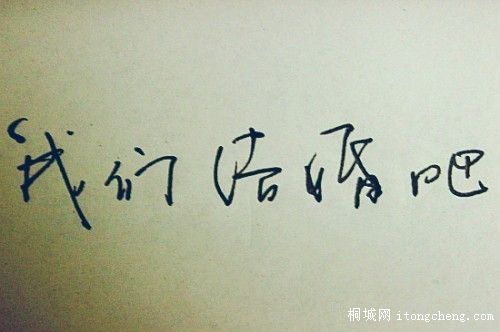 我们结婚吧
桐城网 itongcheng.com